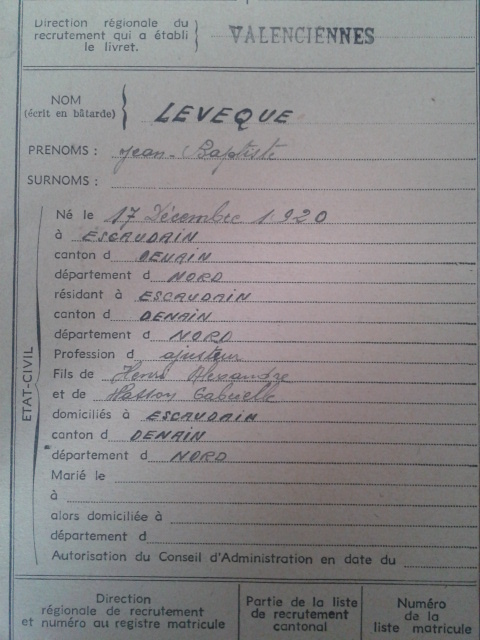 Direction régionale du
recrutement qui a établi
le livret.
VALENCIENNES
NOM
(écrit en bâtarde)
LEVEQUE
PRENOMS : Jean-Baptiste
SURNOMS :
ETAT-CIVIL
Né le 17 Décembre 1920
à ESCAUDAIN
canton d DENAIN
département d NORD
résidant à ESCAUDAIN
canton d DENAIN
département d NORD
Profession d ajusteur
Fils de Henri Alexandre
et de Gabrielle
domiciliés à ESCAUDAIN
canton d DENAIN
département d NORD
Marié le
à
alors domiciliée à
département d
Autorisation du Conseil d'Administration en date du
Direction
régionale de recrutement
et numéro au registre matricule
Partie de la liste
de recrutement
cantonal
Numéro
de la
liste matricule